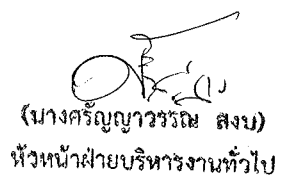 (นางศรัญญาวรรณ สงบ)
หัวหน้าฝ่ายบริหารงานทั่วไป